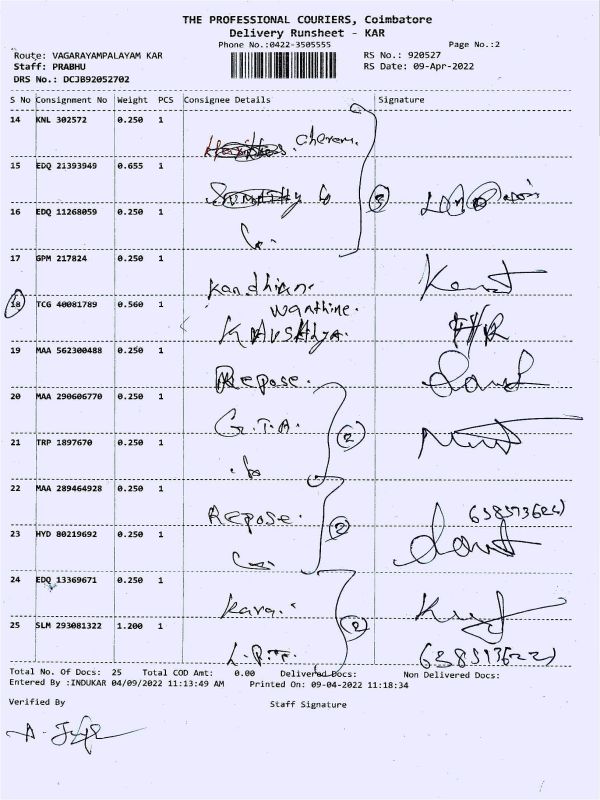 THE PROFESSIONAL COURIERS, Coimbatore
Delivery Runsheet - KAR
Phone No.:0422-3505555 Page No.:2
Route: VAGARAYAMPALAYAM KAR RS No.: 920527
Staff: PRABHU RS Date: 09-Apr-2022
DRS No.: DCJB92052702
S No Consignment No Weight PCS Consignee Details Signature
14 KNL 302572 0.250 1
15 EDQ 21393949 0.655 1
3
16 EDQ 11268059 0.250 1
17 GPM 217824 0.250 1
Kandhian.
18 TCG 40081789 0.560 1
19 MAA 562300488 0.250 1
Repose.
20 MAA 290606770 0.250 1
G.T.A.
2
21 TRP 1897670 0.250 1
22 MAA 289464928 0.250 1
Repose.
2
23 HYD 80219692 0.250 1
24 EDQ 13369671 0.250 1
2
25 SLM 293081322 1.200 1
Total No. Of Docs: 25 Total COD Amt: 0.00 Delivered Docs: Non Delivered Docs:
Entered By :INDUKAR 04/09/2022 11:13:49 AM Printed On: 09-04-2022 11:18:34
Verified By Staff Signature